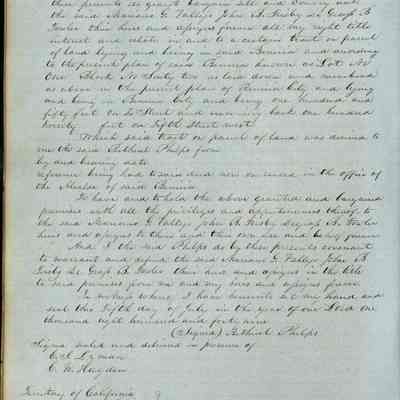 these presents do grant bargain sell and convey unto
the said Mariano G. Vallejo John B. Frisby &
Fowler their heirs and assigns forever all my right title
interest and estate in and to a certain tract or parcel
of land lying and being in said Benicia and according
to the present plan of said Benicia known as Lot No
One Block No Sixty two as laid down and numbered
as above in the present plan of Benicia City and lying
and being in Benicia City and being one hundred and
fifty feet on Street and running back one hundred
twenty feet on Fifth Street west
Which said tract or parcel of land was deeded to
me the said Bethuel Phelps from
by and bearing date
reference being had to said deed now on record in the office of
the Alcalde of said Benicia
To have and to hold the above granted and bargained
premises with all the privileges and appurtenances thereof to
the said Mariano G. Vallejo John B. Frisby B. Fowler
heirs and assigns to their and their own use and behoof forever
And I the said Phelps do by these presents covenant
to warrant and defend the said Mariano G. Vallejo John B
Frisby & B. Fowler their heirs and assigns in the title
to said premises from me and my heirs and assigns forever
In witness whereof I have hereunto set my hand and
seal this Fifth day of July in the year of our Lord one
thousand eight hundred and forty nine
(Signed) Bethuel Phelps
Signed sealed and delivered in presence of
C. S. Lyman
C. W. Hayden
Territory of California